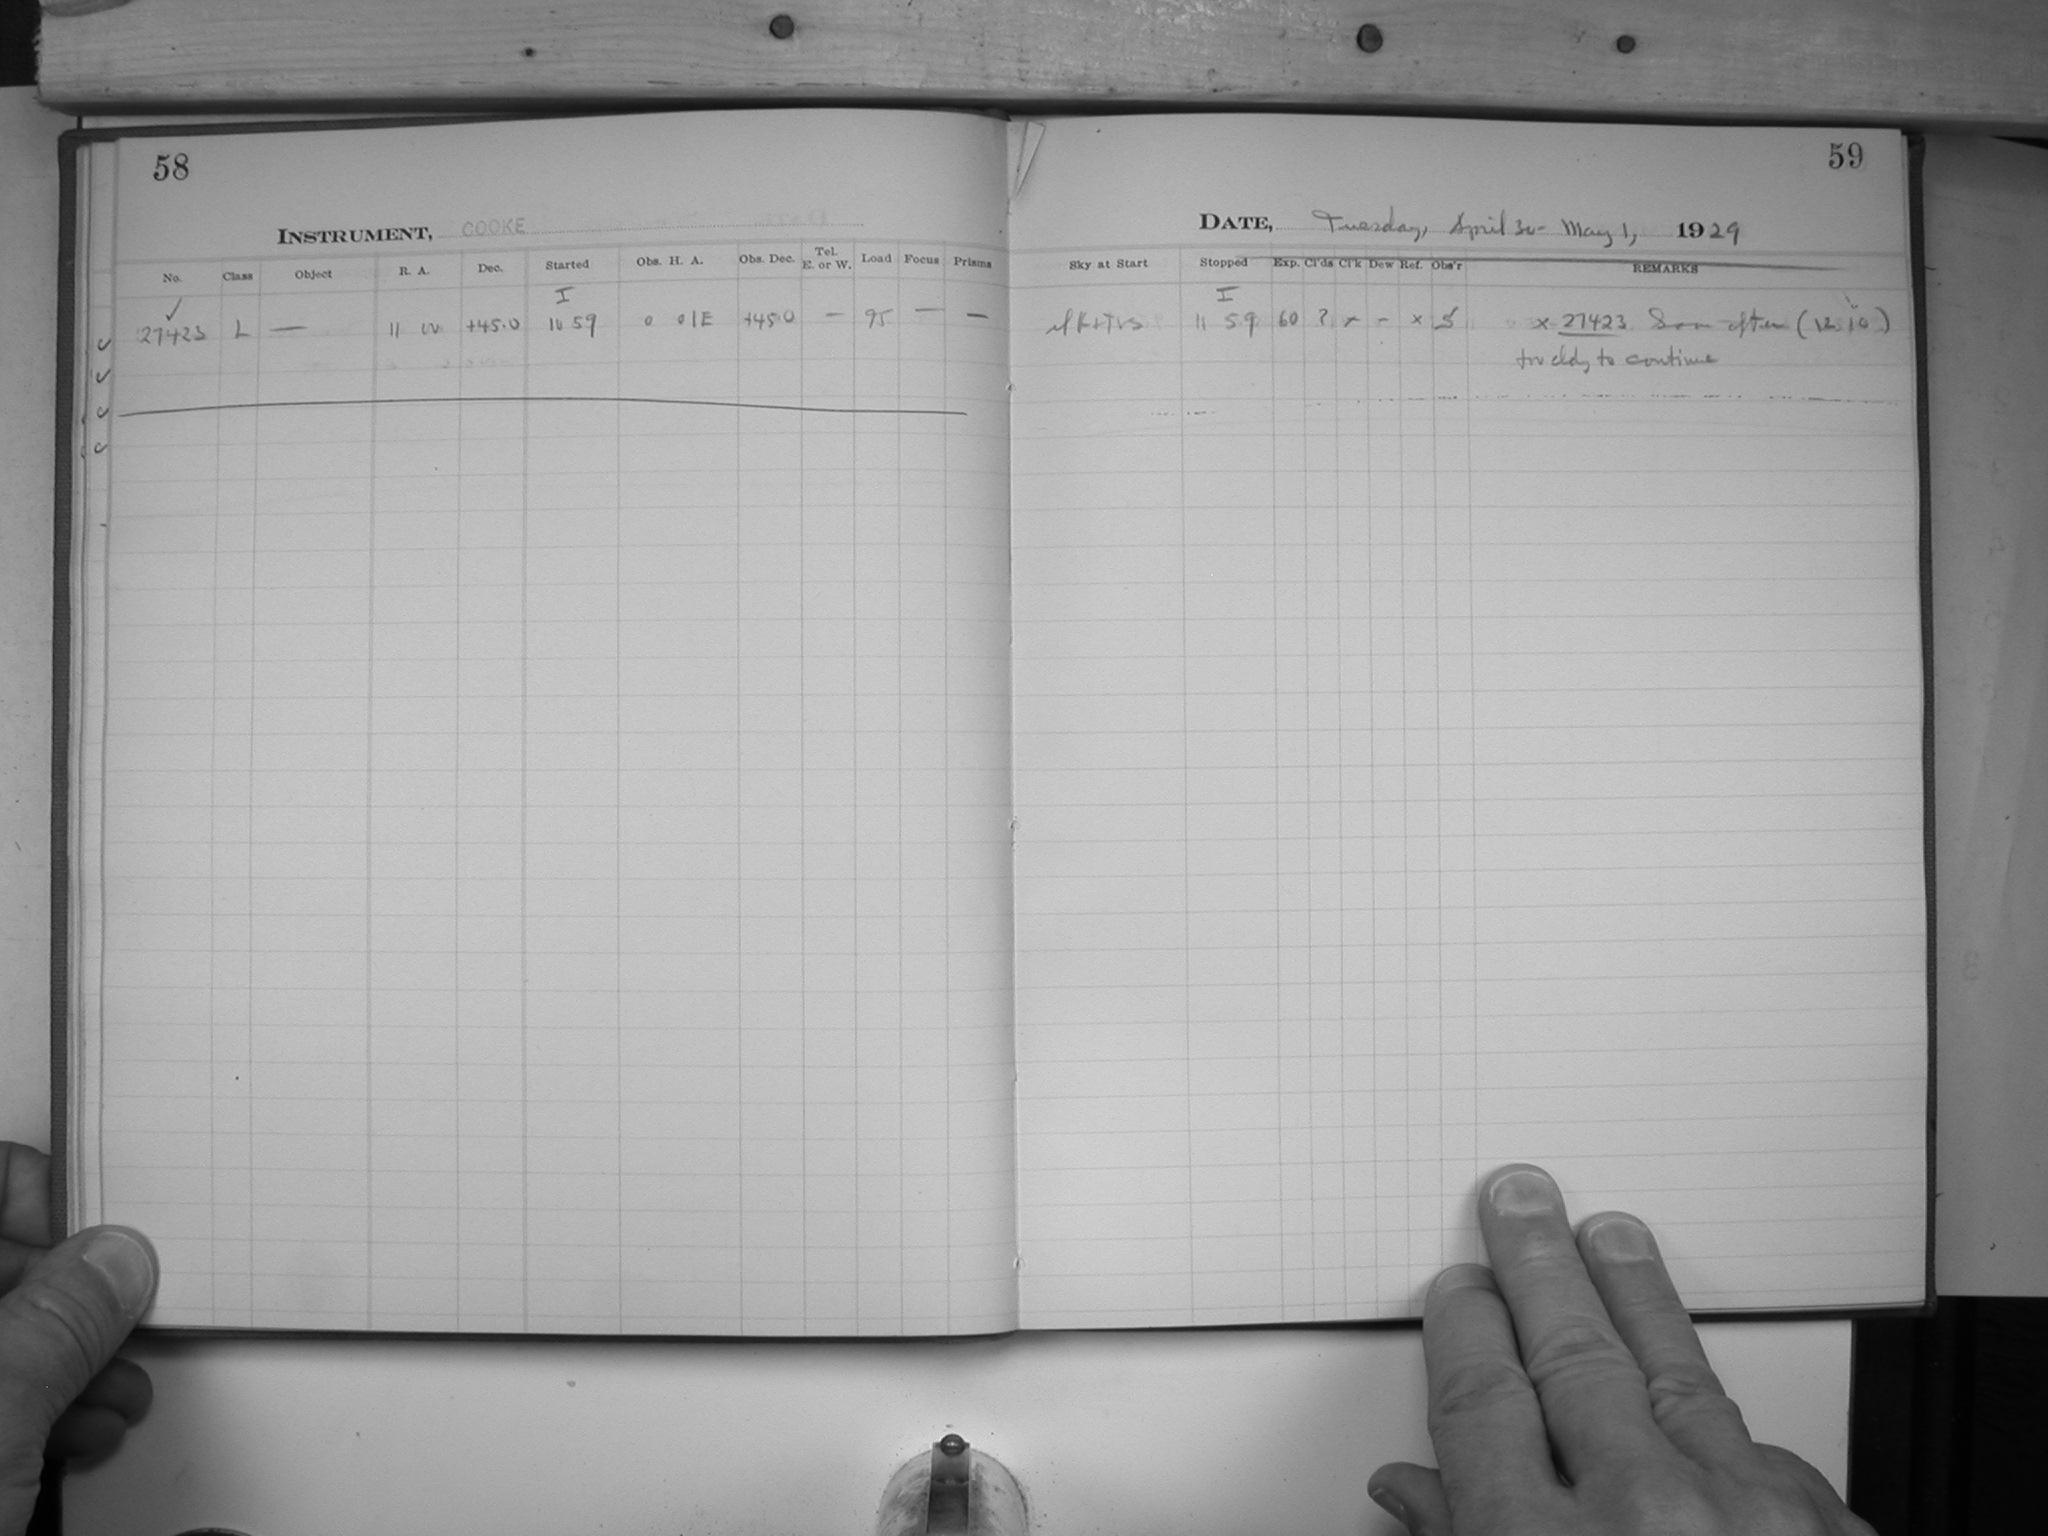 58
INSTRUMENT, COOKE
No. Class Object R. A. Dec. Started Obs. H. A. Obs. Dec. Tel. E. or W. Load Focus Prisms
✓ I
27423 L — 11 +45.0 10 59 0 01E +45.0 — 95 — —
59
DATE, Tuesday, April 30 - May 1, 1929
Sky at Start Stopped Exp. Cl'ds Cl'k Dew Ref. Obs'r REMARKS
I
11 59 60 ? x - x S x 27423 Soon after (12 10)
too cldy to continue